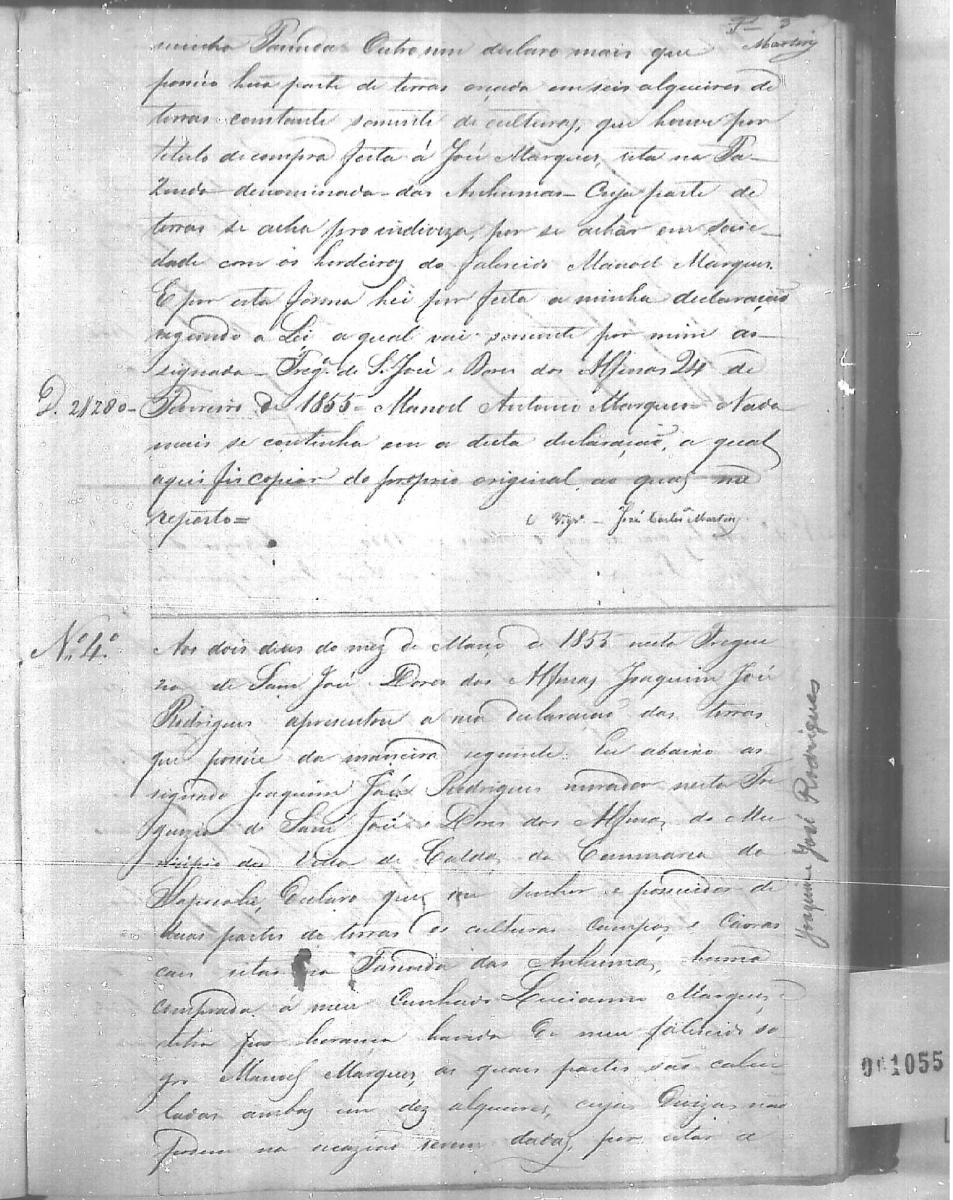 3
Martins
minha Fazenda Outro sim declaro mais que
possúo huã parte de terras orçada em seis alqueires de
terras constante somente de culturas, que houve por
titulo de compra feita á José Marques, sita na Fa-
zenda denominada - das Anhumas - Cuja parte de
terras se acha proindiviza, por se achar em socie-
dade com os herdeiros do falescido Manoel Marques.
E por esta forma hei por feita a minha declaração
segundo a Lei a qual vai somente por mim as-
signada - Freg.ª de S. José e Dores dos Alfenas 24 de
D. 2$280 - Fevereiro de 1855 = Manoel Antonio Marques = Nada
mais se continha em a dicta declaração, a qual
aqui fis copiar do proprio original, ao qual me
reporto =
O Vigr.º - José Carlos Martins
N.º 4.º
Aos dois dias do mez de Março de 1855 nesta Fregue
zia de Sam José e Dores dos Alfenas Joaquim José
Rodrigues apresentou a sua declaração das terras
que possúe da maneira seguinte. Eu abaixo as
signado Joaquim José Rodrigues morador nesta Fre
guezia de Sam José e Dores dos Alfenas do Mu
nicipio da Villa de Caldas da Commarca do
Sapucahi, Declaro que sou Senhor e possuidor de
duas partes de terras de culturas Campos e Cavras
caes sitas na Fazenda das Anhumas, huma
comprada á meu Cunhado Lucianno Marques, e
outra por herança havida de meu falescido so
gro Manoel Marques, as quais partes são calcu
ladas ambas em dez alqueires, cujas Divizas não
Podem na occazião serem dadas, por estar a
Joaquim José Rodrigues
001055